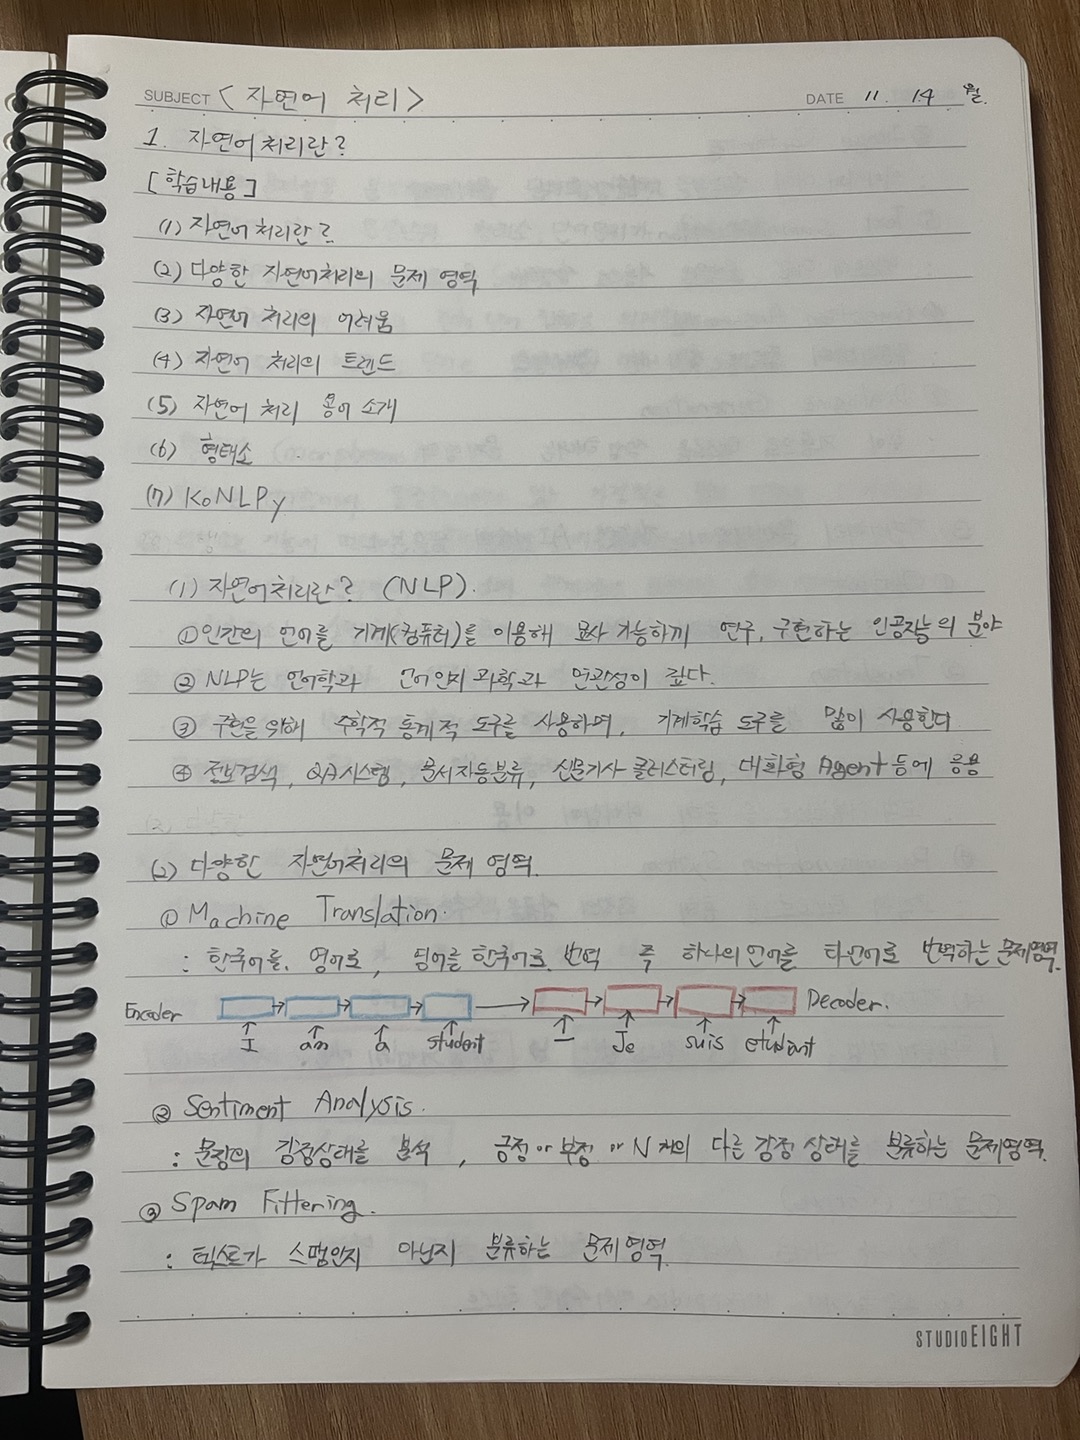 SUBJECT <자연어 처리> DATE 11. 14 월.
1. 자연어 처리란?
[학습내용]
(1) 자연어 처리란?
(2) 다양한 자연어처리의 문제 영역
(3) 자연어 처리의 어려움
(4) 자연어 처리의 트렌드
(5) 자연어 처리 용어 소개
(6) 형태소
(7) KoNLPy
(1) 자연어처리란? (NLP).
① 인간의 언어를 기계(컴퓨터)를 이용해 묘사 가능하게 연구, 구현하는 인공지능의 분야
② NLP는 언어학과 언어인지 과학과 연관성이 깊다.
③ 구현을 위해 수학적 통계적 도구를 사용하며, 기계학습 도구를 많이 사용한다
④ 정보검색, QA시스템, 문서자동분류, 신문기사 클러스터링, 대화형 Agent 등에 응용
(2) 다양한 자연어처리의 문제 영역.
① Machine Translation.
: 한국어를 영어로, 영어를 한국어로 번역 즉 하나의 언어를 타언어로 번역하는 문제영역.
Encoder → → → → → → → Decoder.
I am a student - Je suis etudiant
② Sentiment Analysis.
: 문장의 감정상태를 분석, 긍정 or 부정 or N개의 다른 감정 상태를 분류하는 문제영역.
③ Spam Fittering.
: 텍스트가 스팸인지 아닌지 분류하는 문제영역.
STUDIO EIGHT